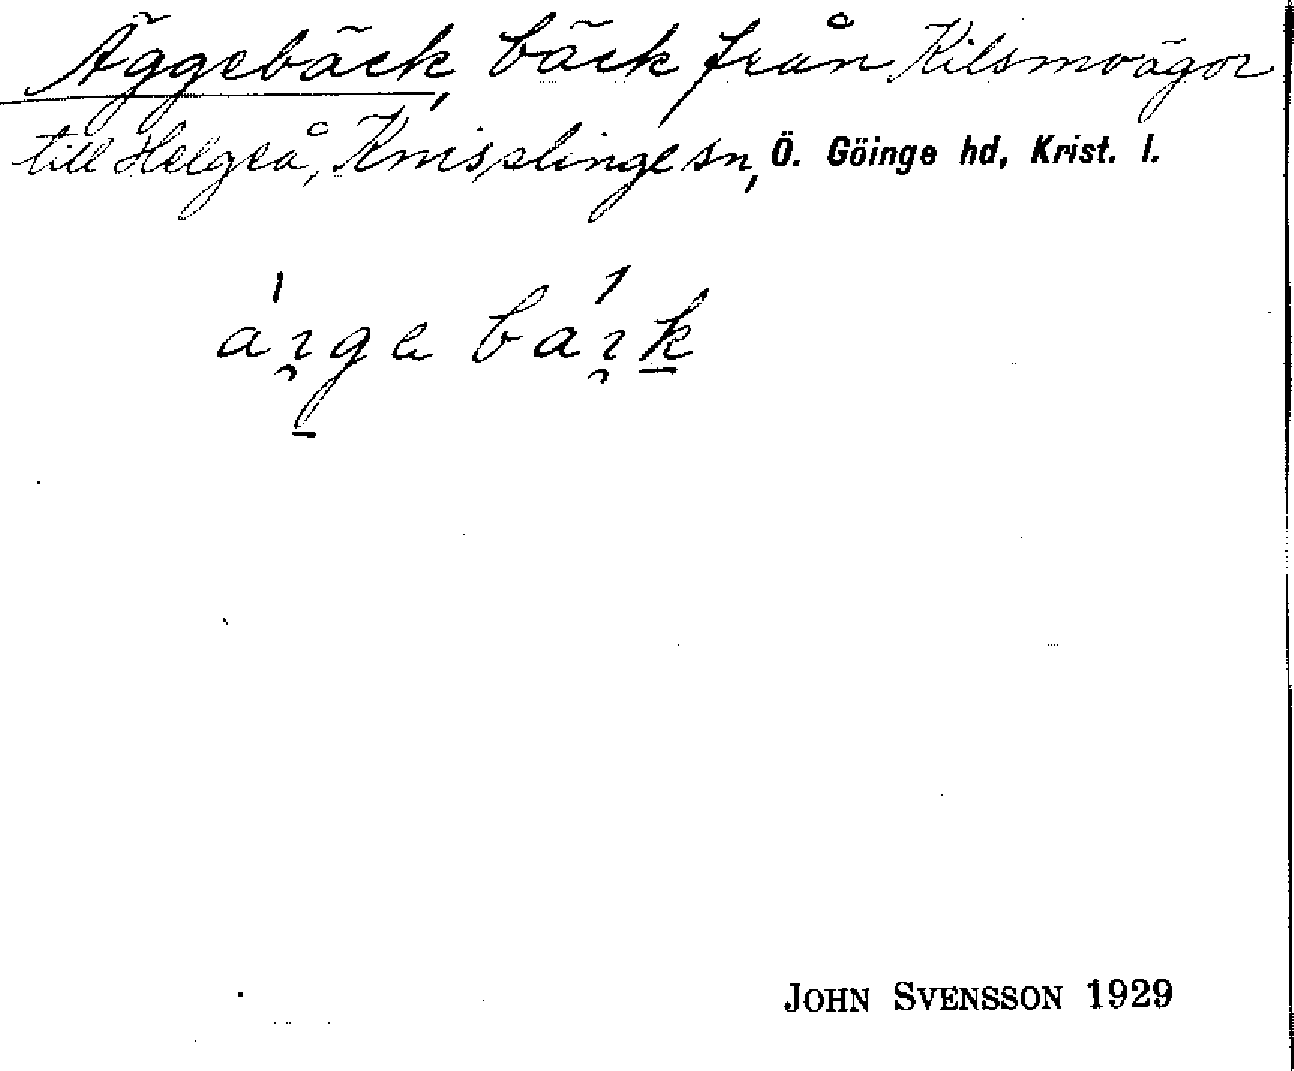 Äggebäck, bäck från Kilsmvägor
till Helgeå, Knisslinge sn, Ö. Göinge hd, Krist. l.
JOHN SVENSSON 1929